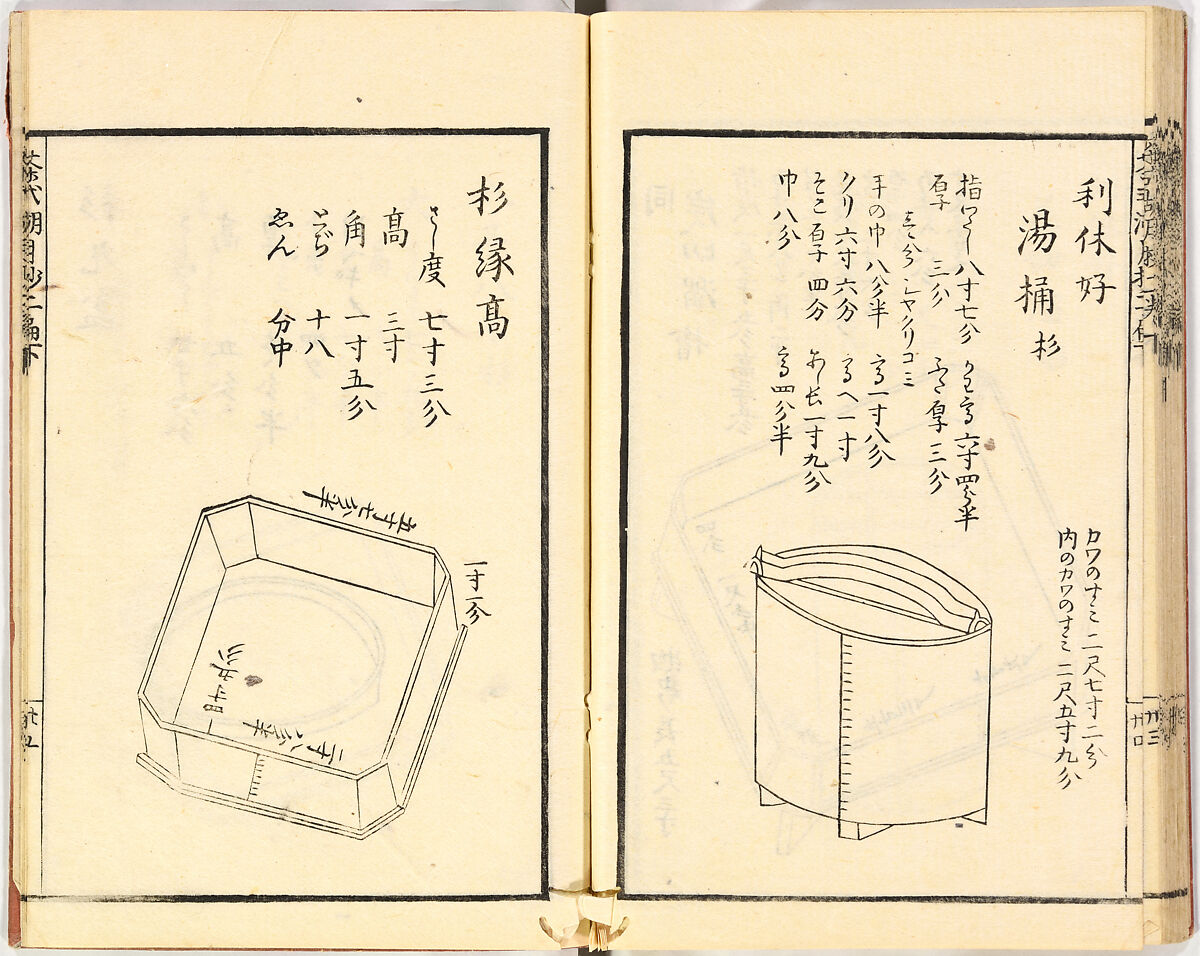 利休好
湯桶 杉
指わたし 八寸七分 ふた高 六寸四分半
厚 三分 ふた厚 三分
壱分 シヤクリコミ
手の巾 八分半 高一寸八分
クリ 六寸六分 高へ一寸
そこ厚 四分 あし長一寸九分
巾 八分 高四分半
カワのすミ 二尺七寸二分
内のカワのすミ 二尺五寸九分
杉縁高
さし度 七寸三分
高 三寸
角 一寸五分
とぢ 十八
ゑん 分中
五寸七分半
一寸一分
四寸五分
二寸八分半